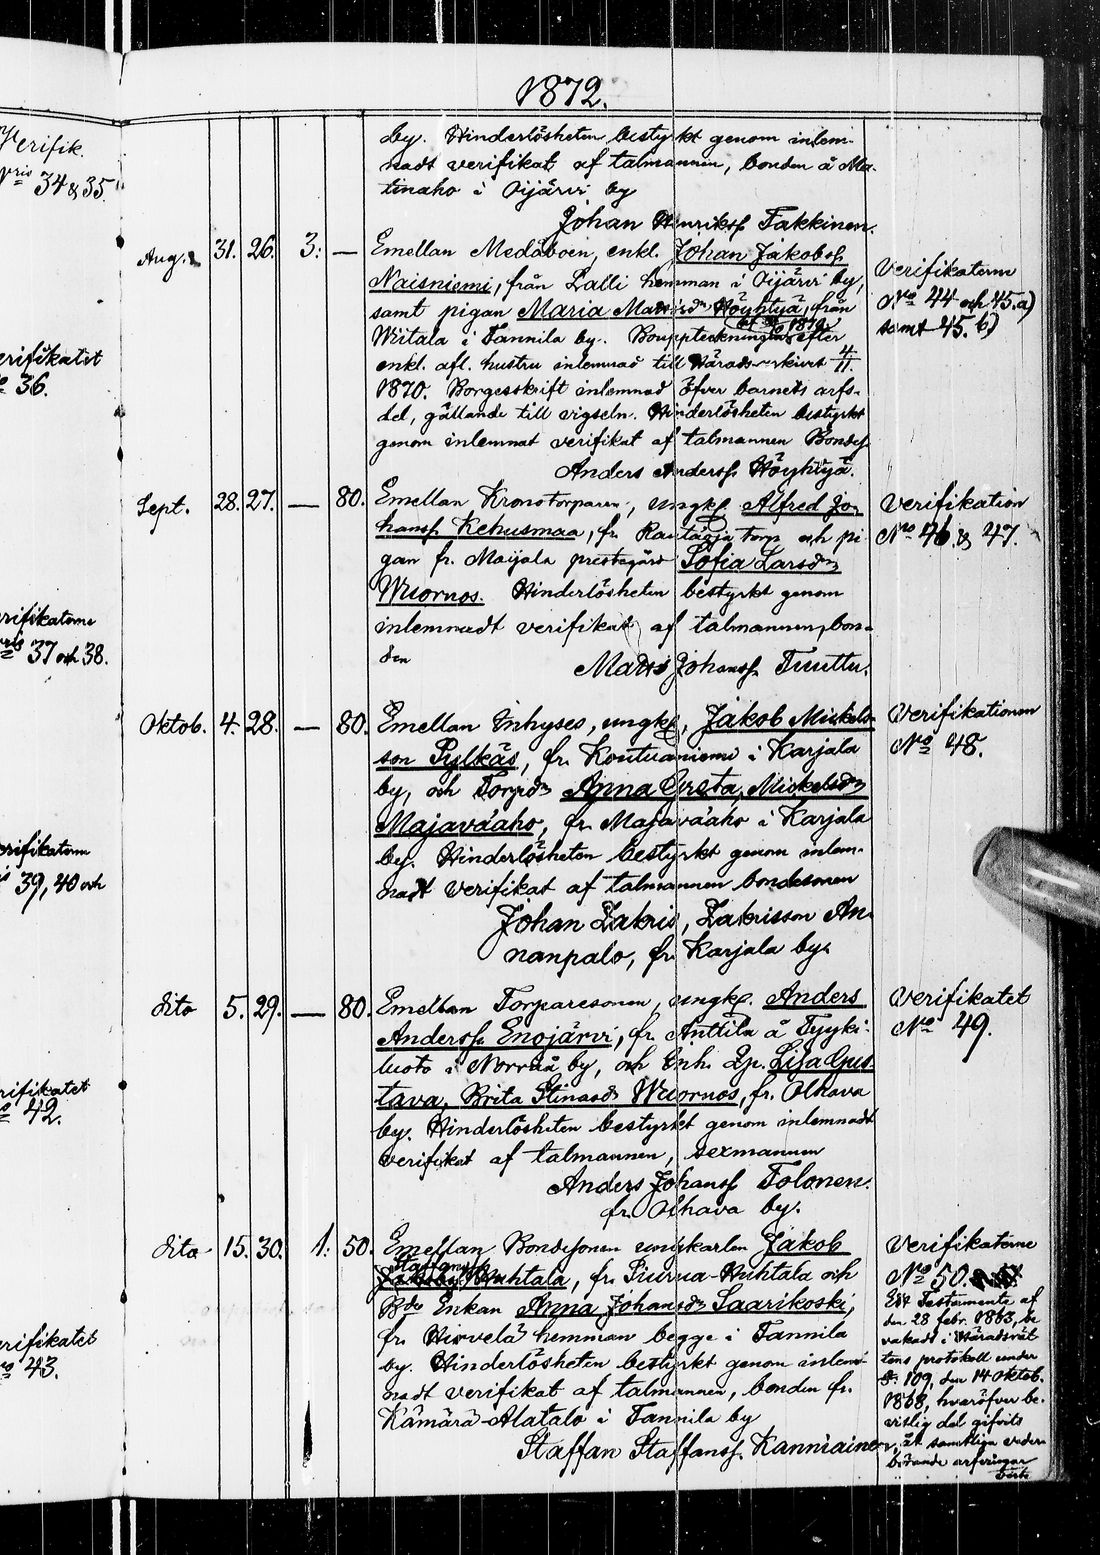 1872.
Verifik.
34 & 35.
Verifikatet
No 36.
Verifikaterne
37 och 38.
Verifikaterne
39, 40 och
Verifikatet
No 42.
Verifikatet
No 43.
by. Hinderlösheten bestyrkt genom inlem-
nadt verifikat af talmannen, bonden å Ma-
tinaho i Oijärvi by
Johan Henrikss. Takkinen.
Aug. 31. 26. 3: — Emellan Medåboen, enkl. Johan Jakobss.
Naisniemi, från Lalli hemman i Oijärvi by,
samt pigan Maria Matsdr Höyhtyä, från
Wiitala i Tannila by. Bouppteckning efter
enkl. afl. hustru inlemnad till Härads-skrivt 4/11.
1870. Borgesskrift inlemnad öfver barnets arfs-
del, gällande till vigseln. Hinderlösheten bestyrkt
genom inlemnat verifikat af talmannen Bondes.
Anders Anderss. Höyhtyä.
Verifikaterne
Nro 44 och 45.a)
samt 45. b)
Sept. 28. 27. — 80. Emellan Kronotorparen, ungk. Alfred Jo-
hanss. Kehusmaa, fr. Torp och pi-
gan fr. Maijala prestegård Sofia Larsdr
Wuornos. Hinderlösheten bestyrkt genom
inlemnadt verifikat af talmannen, bon-
den
Matts Johanss. Tuuttu.
Verifikation
Nro 46 & 47.
Oktob. 4. 28. — 80. Emellan Inhyses, ungk., Jakob Mickels-
son Pylkäs, fr. Kontuaniemi i Karjala
by, och Torpdr Anna Greta, Mickelsdr
Majavaaho, fr. Majavaaho i Karjala
by. Hinderlösheten bestyrkt genom inlem-
nadt verifikat af talmannen bondesonen
Johan Zakris, Zakrisson An-
nanpalo, fr. Karjala by.
Verifikationen
Nro 48.
dito 5. 29. — 80. Emellan Torparesonen, ungk. Anders
Anderss. Enojärvi, fr. Anttila å Tyyki-
luoto i Norråå by, och Inh. Qp. Lisa Gus-
tava, Brita Stinasdr Wuornos, fr. Olhava
by. Hinderlösheten bestyrkt genom inlemnadt
verifikat af talmannen, sexmannen
Anders Johanss. Tolonen.
fr. Olhava by.
Verifikatet
Nro 49.
dito 15. 30. 1: 50. Emellan Bondesonen ungkarlen Jakob
Staffanss.
Huhtala, fr. Siurua-Huhtala och
Bde Enkan Anna Johansdr Saarikoski,
fr. Hirvelä hemman begge i Tannila
by. Hinderlösheten bestyrkt genom inlem-
nadt verifikat af talmannen, bonden fr.
Kämärä-Alatalo i Tannila by
Staffan Staffanss. Kanniainen
Verifikaterne
Nro 50.
Testamente af
den 28 febr. 1863, be-
vakadt i Häradsrät-
tens protokoll under
§. 109, den 14 Oktob.
1868, hvaröfver be-
vislig del gifvits
åt samtliga veder-
börande arfvingar